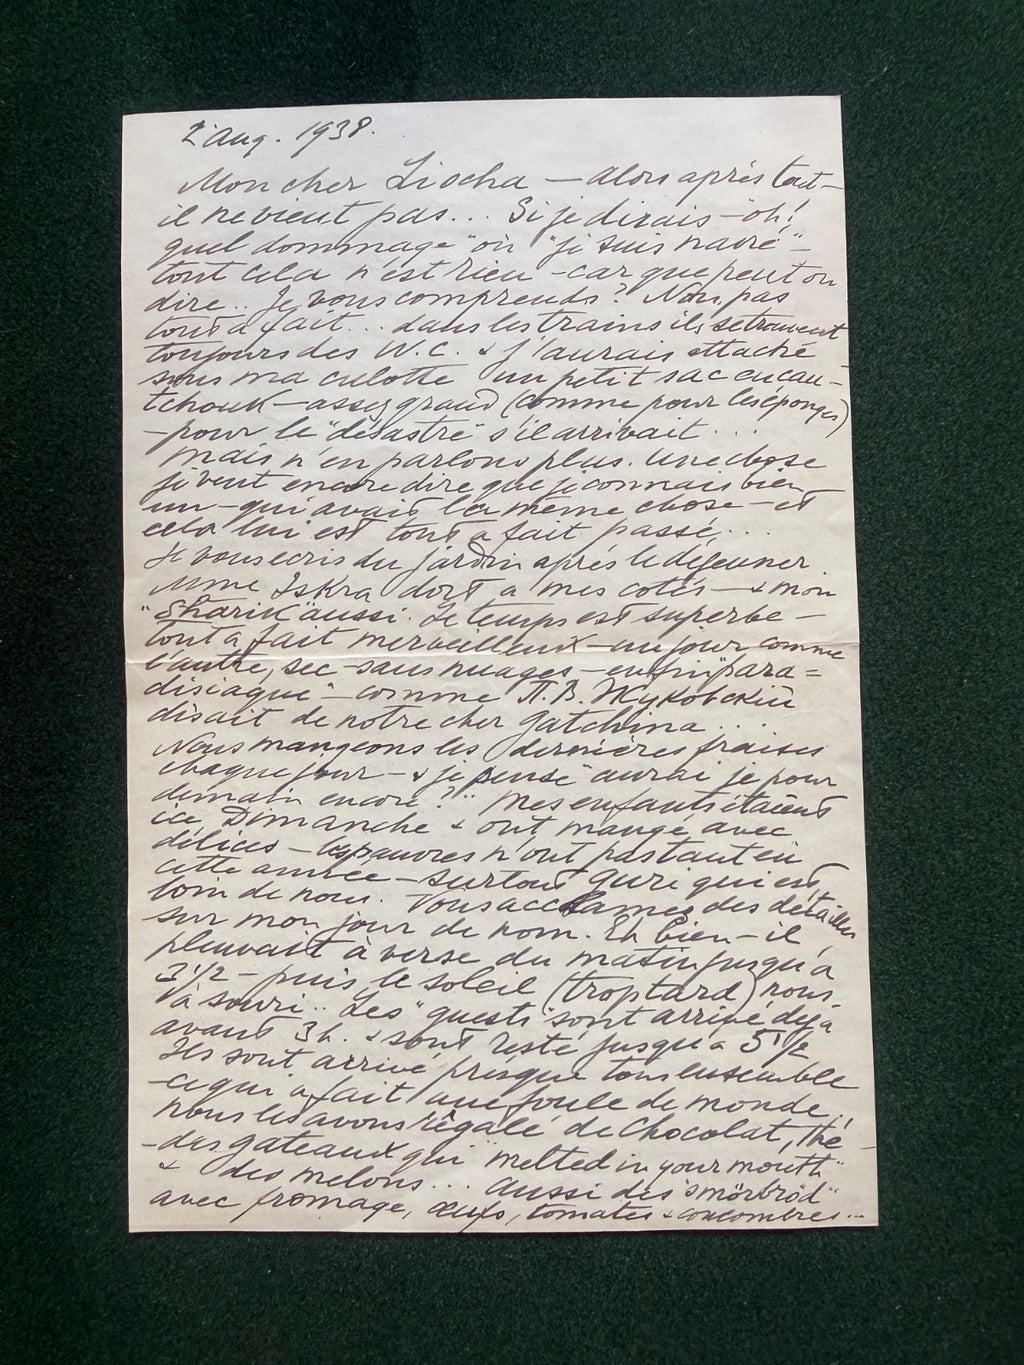 2 Aug. 1938.
Mon cher Liocha — alors après tout —
il ne vient pas... Si je dirais "oh!
quel dommage" ou "je suis navré" —
tout cela n'est rien — car que peut on
dire.. Je vous comprends? Non, pas
tout à fait... dans les trains ils se trouvent
toujours des W.C. & j'aurais attaché
sous ma culotte un petit sac en cau-
tchouk — assez grand (comme pour les éponges)
— pour le "désastre" s'il arrivait...
Mais n'en parlons plus. Une chose
je veut encore dire que je connais bien
un — qui avait la même chose — et
cela lui est tout à fait passé...
Je vous ecris du jardin après le dejeuner.
Mme Iskra dort a mes cotés — & mon
"Sharik" aussi. Le temps est superbe —
tout a fait merveilleux — un jour comme
l'autre, sec — sans nuages — enfin "para=
disiaque" — comme П. В. Жуковскiй
disait de notre cher Gatchina...
Nous mangeons les dernières fraises
chaque jour — & je pense "aurai je pour
demain encore?" Mes enfants étaient
ici Dimanche & ont mangé avec
délices — les pauvres n'ont pas tant eu
cette année — surtout Guri qui est
loin de nous. Vous des détailles
sur mon jour de nom. Eh bien — il
pleuvait à verse du matin jusqu'a
3 1/2 — puis le soleil (trop tard) nous
à souri.. Les "guests" sont arrivé déja
avant 3 h. & sont resté jusqu'a 5 1/2
Ils sont arrivé presque tous ensemble
— ce qui a fait une foule de monde..
Nous les avons régalé de Chocolat, thé —
— des gateaux qui "melted in your mouth"
& des melons... Aussi des "smörbröd"
avec fromage, œufs, tomates & concombres...